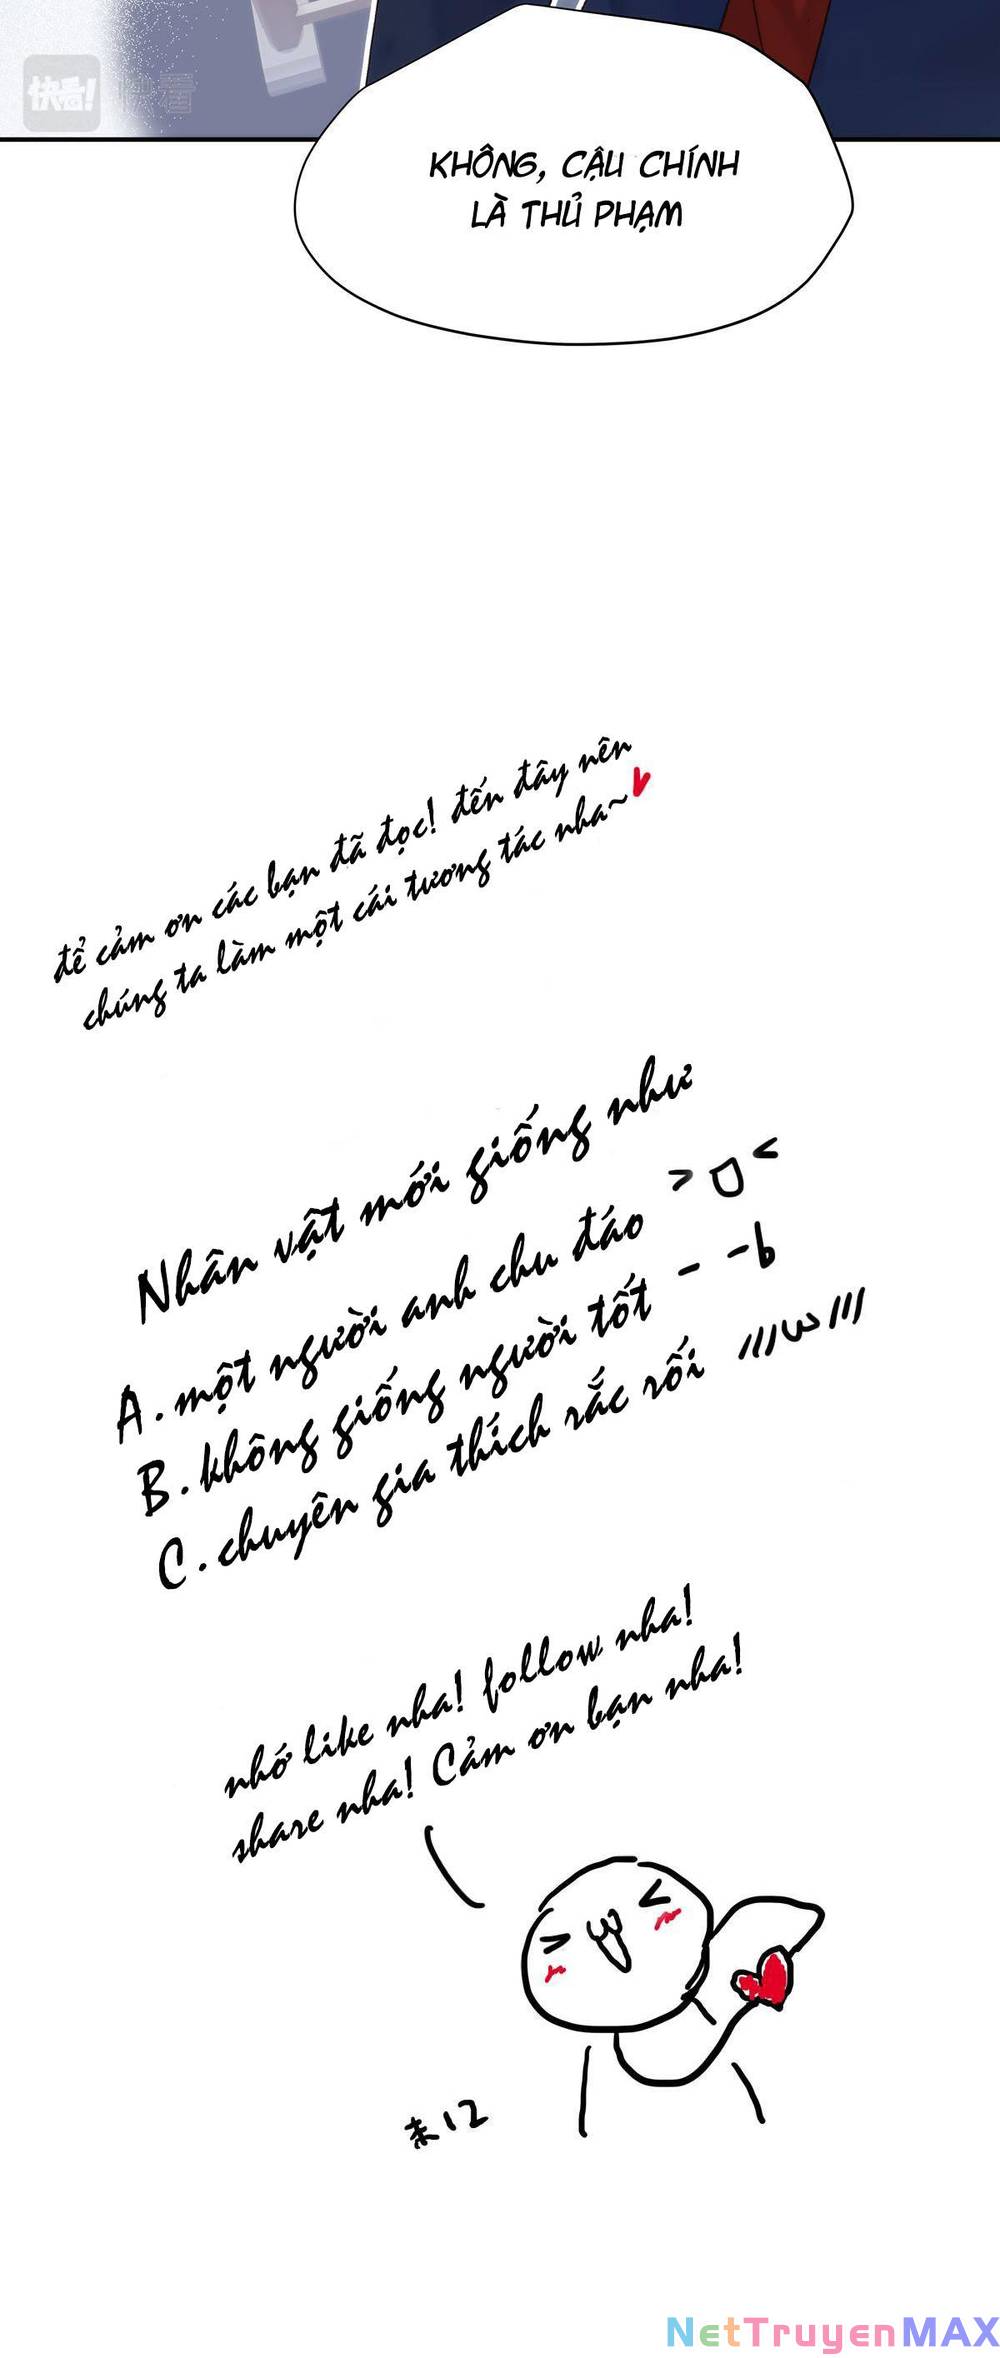 快看!
快看
KHÔNG, CẬU CHÍNH
LÀ THỦ PHẠM
để cảm ơn các bạn đã đọc! đến đây nên
chúng ta làm một cái tương tác nha~
Nhân vật mới giống như
A. một người anh chu đáo >0<
B. không giống người tốt - -b
C. chuyên gia thích rắc rối ///ω///
nhớ like nha! follow nha!
share nha! Cảm ơn bạn nha!
未12
NetTruyenMAX